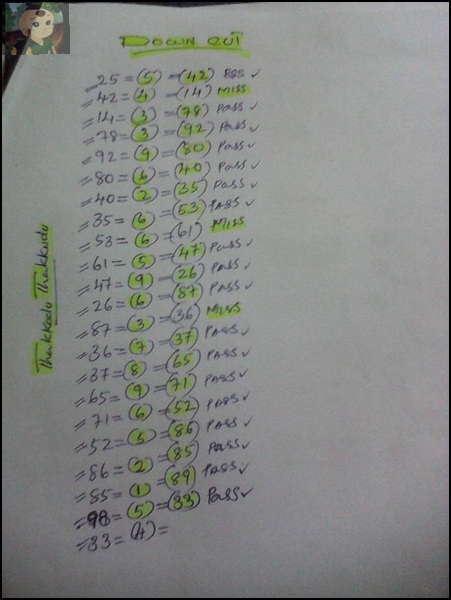 DOWN CUT
25 = (5) = (42) PASS ✓
= 42 = (4) = (14) MISS
= 14 = (3) = (78) PASS ✓
= 78 = (3) = (92) PASS ✓
= 92 = (9) = (80) PASS ✓
= 80 = (6) = (40) PASS ✓
= 40 = (2) = (35) PASS ✓
= 35 = (6) = (53) PASS ✓
= 53 = (6) = (61) MISS
= 61 = (5) = (47) PASS ✓
= 47 = (9) = (26) PASS ✓
= 26 = (6) = (87) PASS ✓
= 87 = (3) = (36) MISS
= 36 = (7) = (37) PASS ✓
= 37 = (8) = (65) PASS ✓
= 65 = (9) = (71) PASS ✓
= 71 = (6) = (52) PASS ✓
= 52 = (5) = (86) PASS ✓
= 86 = (2) = (85) PASS ✓
= 85 = (1) = (89) PASS ✓
= 98 = (5) = (33) PASS ✓
= 33 = (4) =